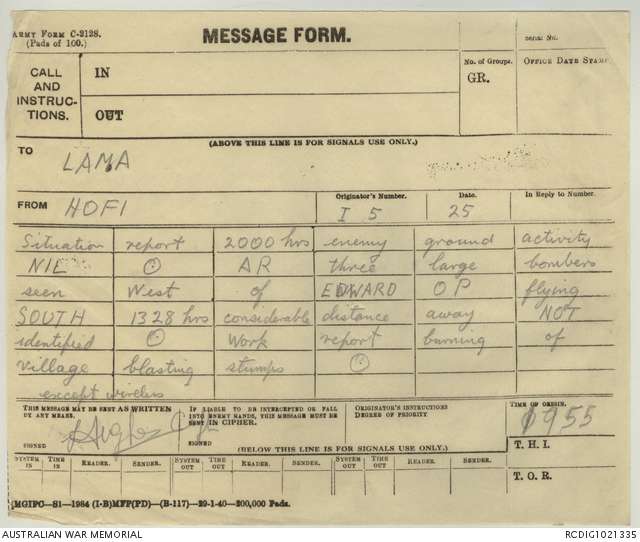 ARMY FORM C-2128.
(Pads of 100.)
MESSAGE FORM.
Serial No.
CALL AND INSTRUC-TIONS.
IN
OUT
No. of Groups.
GR.
OFFICE DATE STAMP
(ABOVE THIS LINE IS FOR SIGNALS USE ONLY.)
TO LAMA
FROM HOFI
Originator's Number.
I 5
Date.
25
In Reply to Number.
Situation report 2000 hrs enemy ground activity
NIL ⊙ AR three large bombers
seen West of EDWARD OP flying
SOUTH 1328 hrs considerable distance away NOT
identified ⊙ Work report burning of
village blasting stumps ⊙
except wireless
THIS MESSAGE MAY BE SENT AS WRITTEN BY ANY MEANS.
SIGNED
IF LIABLE TO BE INTERCEPTED OR FALL INTO ENEMY HANDS, THIS MESSAGE MUST BE SENT IN CIPHER.
SIGNED
ORIGINATOR'S INSTRUCTIONS
DEGREE OF PRIORITY
TIME OF ORIGIN.
1955
(BELOW THIS LINE IS FOR SIGNALS USE ONLY.)
T. H. I.
SYSTEM IN TIME IN READER. SENDER. SYSTEM OUT TIME OUT READER. SENDER. SYSTEM OUT TIME OUT READER. SENDER.
T. O. R.
MGIPC—S1—1984 (I-B)MFP(PD)—(B-117)—29-1-40—200,000 Pads.
AUSTRALIAN WAR MEMORIAL
RCDIG1021335